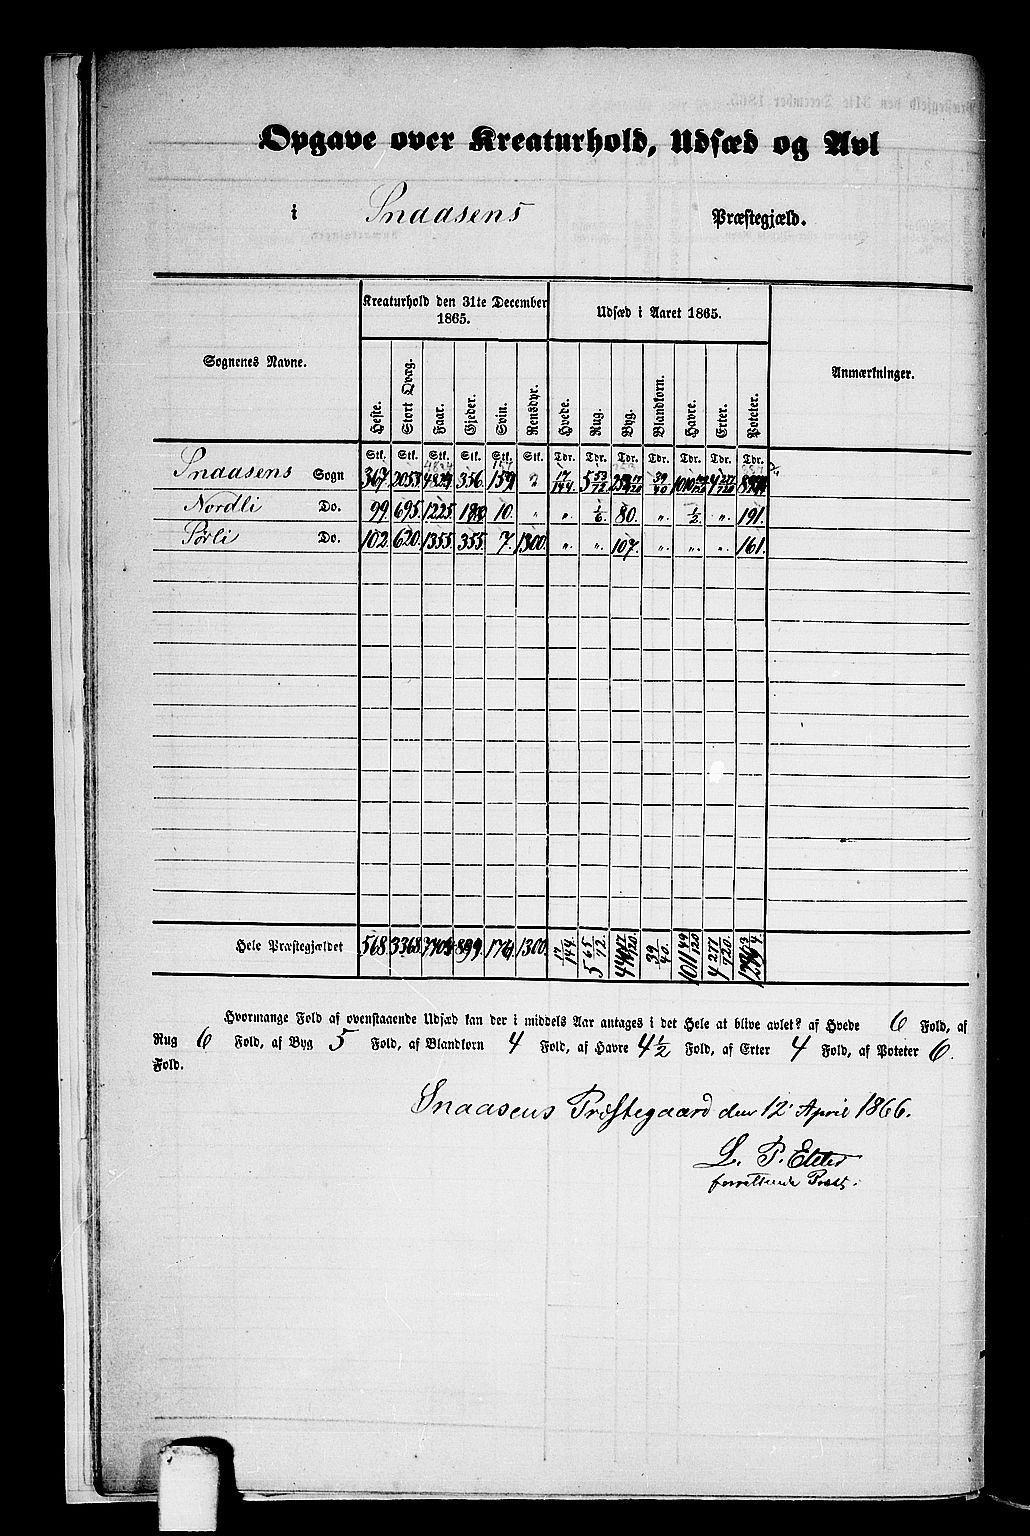 Opgave over Kreaturhold, Udsæd og Avl
i Snaasens Præstegjæld.
Sognenes Navne.
Kreaturhold den 31te December 1865.
Udsæd i Aaret 1865.
Anmærkninger.
Heste. Stort Qvæg. Faar. Gjeder. Svin. Rensdyr. Hvede. Rug. Byg. Blandkorn. Havre. Erter. Poteter.
Stk. Stk. Stk. Stk. Stk. Stk. Tdr. Tdr. Tdr. Tdr. Tdr. Tdr. Tdr.
Snaasens Sogn 367 2053 356 159 17/144 5 53/72 39/40
Nordli Do. 99 695 1225 10 " " 1/6 80. " 1/2 " 191.
Sørli Do. 102 620 1355 355 7. 1300. " " 107. " " " 161.
Hele Præstegjældet 568 3368 899 1300 17/144 5 65/72 39/40. 1011 49/120
Hvormange Fold af ovenstaaende Udsæd kan der i middels Aar antages i det Hele at blive avlet? af Hvede 6 Fold, af
Rug 6 Fold, af Byg 5 Fold, af Blandkorn 4 Fold, af Havre 4 1/2 Fold, af Erter 4 Fold, af Poteter 6.
Fold.
Snaasens Præstegaard den 12' April 1866.
L. P. Elster
forrettende Præst.